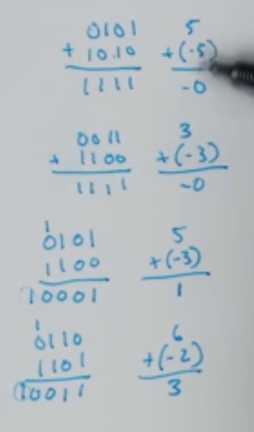 0101 5
+ 1010 +(-5)
1111 -0
0011 3
+ 1100 +(-3)
1111 -0
1
0101 5
1100 +(-3)
10001 1
1
0110 6
1101 +(-2)
10011 3